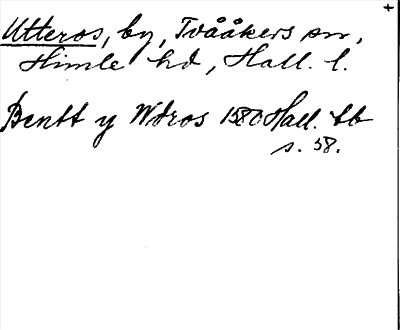 +
Utteros, by, Tvååkers sn,
Himle hd, Hall. l.
Bentt y Wdros 1580 Hall. tb
s. 58.